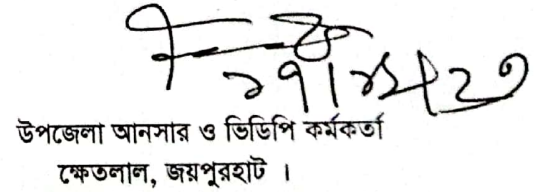 উপজেলা আনসার ও ভিডিপি কর্মকর্তা
ক্ষেতলাল, জয়পুরহাট ।